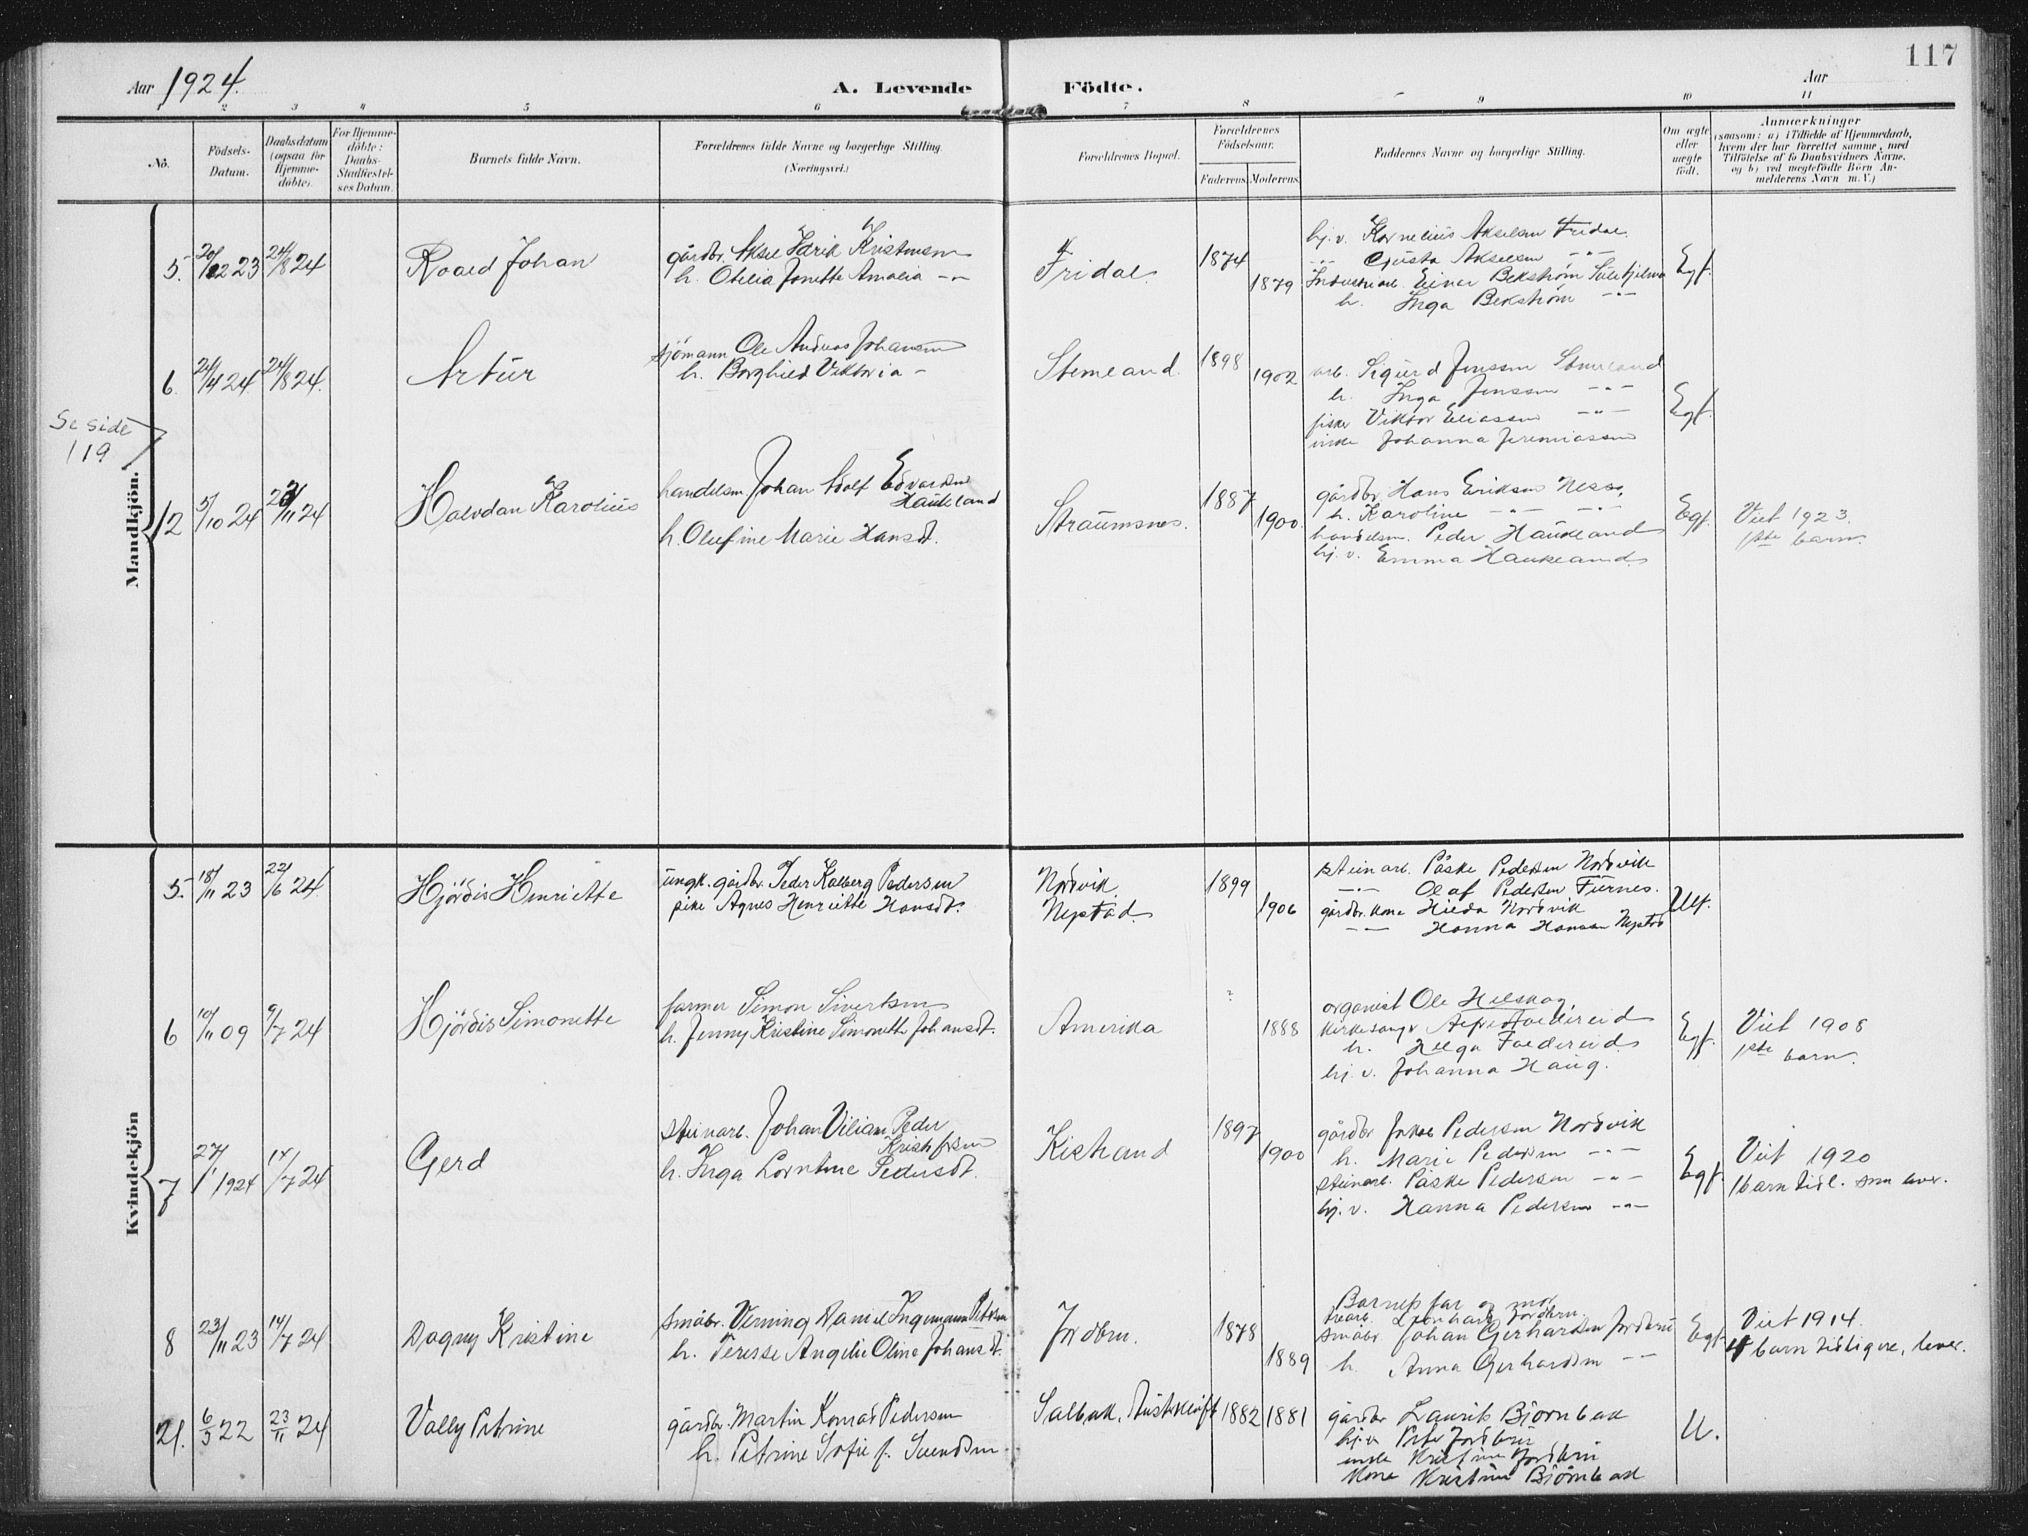 117
Aar 1924.
A. Levende Födte.
Aar
1 2 3 4 5 6 7 8 9 10 11
No.
Födsels-Datum.
Daabsdatum (ogsaa for Hjemme-döbte).
For Hjemme-döbte: Daabs-Stadfæstel-ses Datum.
Barnets fulde Navn.
Forældrenes fulde Navne og borgerlige Stilling. (Næringsvei.)
Forældrenes Bopæl.
Forældrenes Födselsaar.
Faderens. Moderens.
Faddernes Navne og borgerlige Stilling.
Om ægte eller uægte födt.
Anmærkninger
(saasom: a) i Tilfælde af Hjemmedaab, hvem der har forrettet samme, med Tilföielse af to Daabsvidners Navne, og b) ved uægtefödte Börn An-melderens Navn m. V.)
Mandkjön.
5. 20/12 23 24/8 24 Roald Johan
gårdbr. Aksel Kristensen
h. Otelia Jonette Amalia -"-
Fridal 1874 1879
hj. v. Kornelius Akselsen Fridal.
-"- Gusta Akselsen -"-
Industriarb. Einar Bekström
h. Inga Bekström -"-
Egf.
6. 24/4 24 24/8 24. Artur
sjömann Ole Andreas Johansen
h. Borghild Viktoria -
Stemland. 1898 1902
arb. Sigurd Jenssen Stemland
h. Inga Jenssen -"-
fisker Viktor Eliassen -"-
enke Johanna Jeremiassen
Egf.
Se side
119
12 5/10 24 23/11 24 Halvdan Karolius
handelsm. Johan Adolf Edvardsen
Haukeland
h. Olufine Marie Hansdt.
Straumsnes. 1887 1900
gårdbr. Hans Eriksen Ness,
h. Karoline -"- -"-
handelsm. Peder Haukeland
hj. v. Emma Haukeland.
Egf.
Viet 1923.
1ste barn.
Kvindekjön
5. 18/11 23 22/6 24. Hjördis Henriette
ungk. gårdbr. Peder Kalberg Pedersen
pike Agnes Henriette Hansdt.
Nordvik.
Nystad. 1899 1906
steinarb. Påske Pedersen Nordvik
-"- Olaf Pedersen Furnes.
gårdbr. kone Hilda Nordvik
-"- Hanna Hansen Nystad
Uf.
6 10/11 09 9/7 24 Hjördis Simonette
farmer Simon Sivertsen
h. Jenny Kristine Simonette Johansdt.
Amerika ? 1888
organist Ole Helskog.
kirkesang. Alfred Foldereid
h. Helga Foldereid.
hj. v. Johanna Haug.
Egf.
Viet 1908
1ste barn.
7 27/1 1924 14/7 24 Gerd
steinarb. Johan Vilian Peder
Kristofersen
h. Inga Lorntine Pedersdt.
Kistrand 1897 1900
gårdbr. Jakob Pedersen Nordvik
h. Marie Pedersen -"-
steinarb. Påske Pedersen -"-
hj. v. Hanna Pedersen -"-
Egf.
Viet 1920
1 barn tidl. som lever.
8 23/11 23 14/7 24 Dagny Kristine
småbr. Verning Daniel Ingemann Petersen
h. Terese Angelie Oline Johansdt.
Jordbru. 1878 1889
Barnets far og mor
Leonhard Jordbru.
småbr. Johan Gerhardsen Jordbru
h. Anna Gerhardsen -"-
Egf.
Viet 1914.
4 barn tidligere, lever.
21. 6/3 22 23/11 24 Vally Petrine
gårdbr. Martin Konrad Pedersen
h. Petrine Sofie f. Svendsen
Salbuk, 1882 1881
gårdbr Laurits Björnbak
hj. v Jordbru
enke Kristine Jordbru
kone Kristine Björnbak
U.